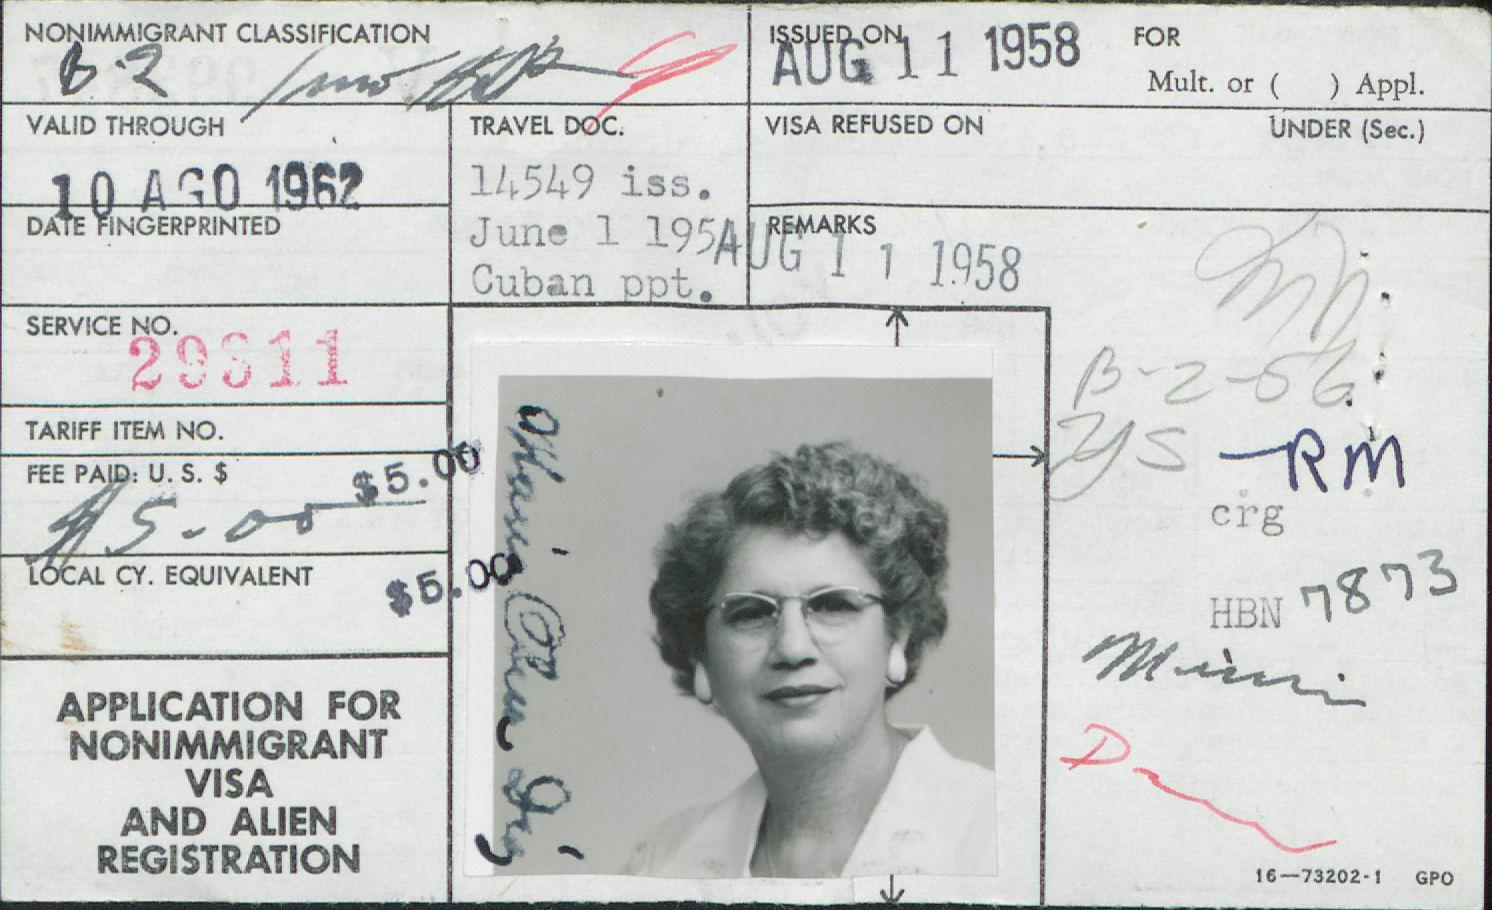 NONIMMIGRANT CLASSIFICATION
B-2
ISSUED ON
AUG 11 1958
FOR
Mult. or ( ) Appl.
VALID THROUGH
10 AGO 1962
TRAVEL DOC.
14549 iss.
June 1 195
Cuban ppt.
VISA REFUSED ON
UNDER (Sec.)
DATE FINGERPRINTED
REMARKS
AUG 11 1958
SERVICE NO.
29311
B-2-56
RM
TARIFF ITEM NO.
FEE PAID: U. S. $
$5.00
$5-00
crg
LOCAL CY. EQUIVALENT
$5.00
HBN 7873
Maria
APPLICATION FOR
NONIMMIGRANT
VISA
AND ALIEN
REGISTRATION
16—73202-1 GPO